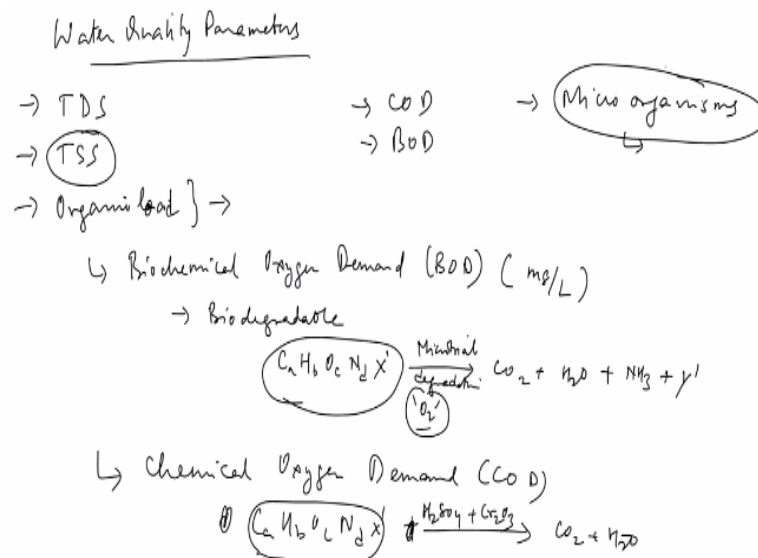 Water Quality Parameters
→ TDS → COD → Micro organisms
→ TSS → BOD ↳
→ Organic load } →
↳ Biochemical Oxygen Demand (BOD) (mg/L)
→ Biodegradable
CaHbOcNdX' Microbial degradation 'O2' → CO2 + H2O + NH3 + y'
↳ Chemical Oxygen Demand (COD)
CaHbOcNdX' H2SO4 + Cr2O3 → CO2 + H2O